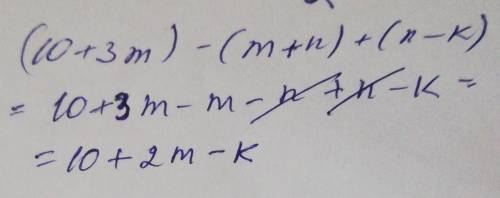 (10+3m)-(m+n)+(n-k)
= 10+3m-m-n+n-k=
=10+2m-k